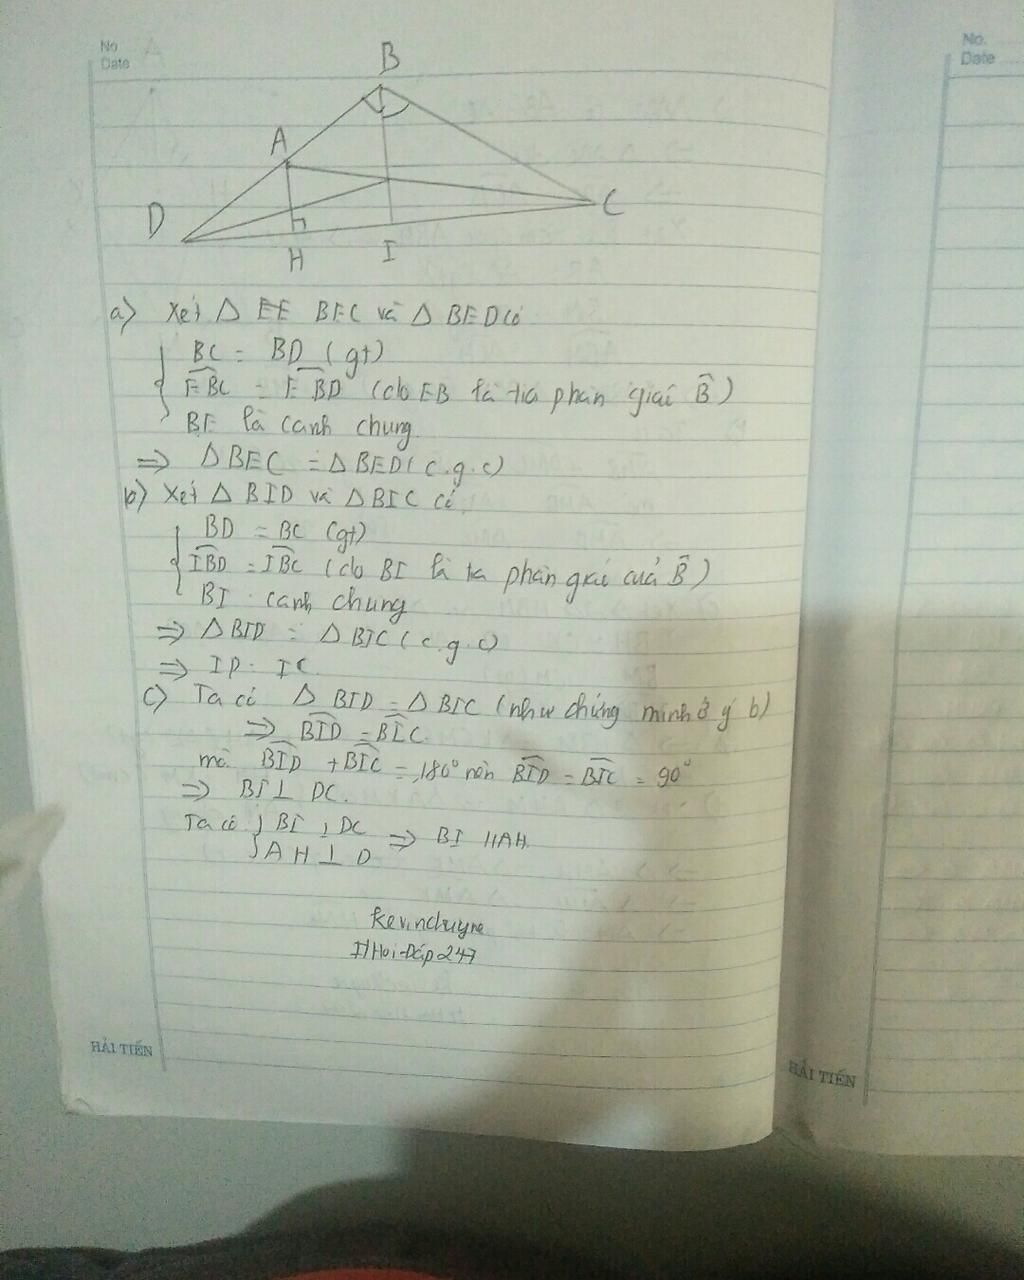 No
Date
No.
Date
B
A
D
C
H
I
a) Xét Δ EE BEC và Δ BED có
BC = BD (gt)
EBC = EBD (do EB là tia phân giái B̂)
BE là cạnh chung
=> ΔBEC = ΔBED (c.g.c)
b) Xét Δ BID và ΔBIC có
BD = BC (gt)
IBD = IBC (do BI là ta phân giái cuả B̂)
BI cạnh chung
=> ΔBID = ΔBIC (c.g.c)
=> ID = IC
c) Ta có Δ BID = ΔBIC (như chứng minh ở ý b)
=> BID = BIC
mà BID + BIC = 180° nên BID = BIC = 90°
=> BI ⊥ DC.
Ta có { BI ⊥ DC => BI // AH.
{ AH ⊥ D
Kevinchuyne
HẢI TIẾN
HẢI TIẾN